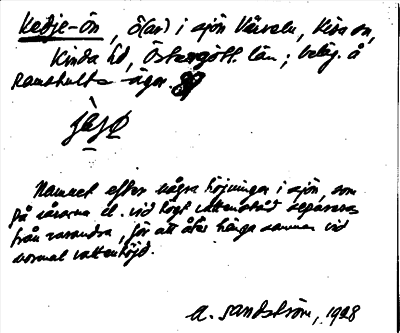 Kedje-ön, ö(ar) i sjön Värveln, Kisa sn,
Kinda hd, Östergötl. län; beläg. å
Ramshults ägor.
Namnet efter några höjningar i sjön, som
på vårarna el. vid högt vattenstånd separeras
från varandra, för att åter hänga samman vid
normal vattenhöjd.
A. Sandström, 1928